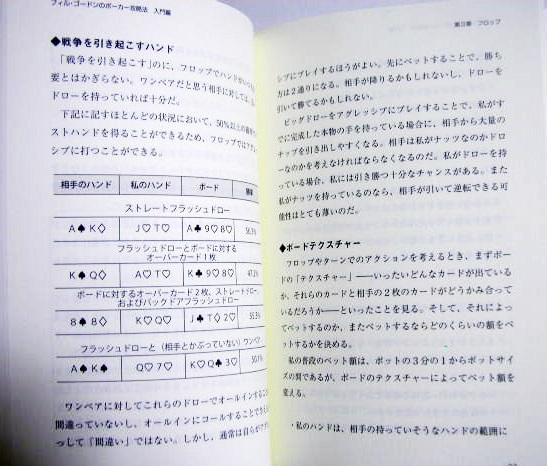 フィル・ゴードンのポーカー攻略法 入門編
◆戦争を引き起こすハンド
「戦争を引き起こす」のに、フロップでハンドが
要とはかぎらない。ワンペアだと思う相手に対しては、
ローを持っていれば十分だ。
下記に記すほとんどの状況において、50%以上の
ストハンドを得ることができるため、フロップではアグ
シブに打つことができる。
相手のハンド 私のハンド ボード
ストレートフラッシュドロー
A♠ K♢ J♡ T♡ A♣ 9♡ 8♡ 56.3%
フラッシュドローとボードに対する
オーバーカード1枚
K♠ Q♢ A♡ T♡ K♣ 9♡ 8♡ 47.2%
ボードに対するオーバーカード2枚、ストレートドロー、
およびバックドアフラッシュドロー
8♠ 8♢ K♡ Q♡ J♣ T♢ 2♡
フラッシュドローと(相手とかぶっていない)ワンペア
A♠ K♠ Q♡ 7♡ K♡ Q♣ 3♡
ワンペアに対してこれらのドローでオールインする
間違っていないし、オールインにコールすることで
って「間違い」ではない。しかし、通常は自らが
第3章 フロップ
シブにプレイするほうがよい。先にベットすることで、勝ち
方は2通りになる。相手が降りるかもしれないし、ドローを
引いて勝てるかもしれない。
ビッグドローをアグレッシブにプレイすることで、私がす
でに完成した本物の手を持っている場合に、相手から大量の
チップを引き出しやすくなる。相手は私がナッツなのかドロ
ーなのかを考えなければならなくなるのだ。私がドローを持
っている場合、私には引き勝つ十分なチャンスがある。また
私がナッツを持っているのなら、相手が引いて逆転できる可
能性はとても薄いのだ。
◆ボードテクスチャー
フロップやターンでのアクションを考えるとき、まずボー
ドの「テクスチャー」――いったいどんなカードが出ている
か、それらのカードと相手の2枚のカードがどうかみ合って
いるだろうか――といったことを見る。そして、それによっ
てベットするのか、またベットするならどのくらいの額をベ
ットするかを決める。
私の普段のベット額は、ポットの3分の1からポットサイ
ズの間であるが、ボードのテクスチャーによってベット額を
変える。
・私のハンドは、相手の持っていそうなハンドの範囲に